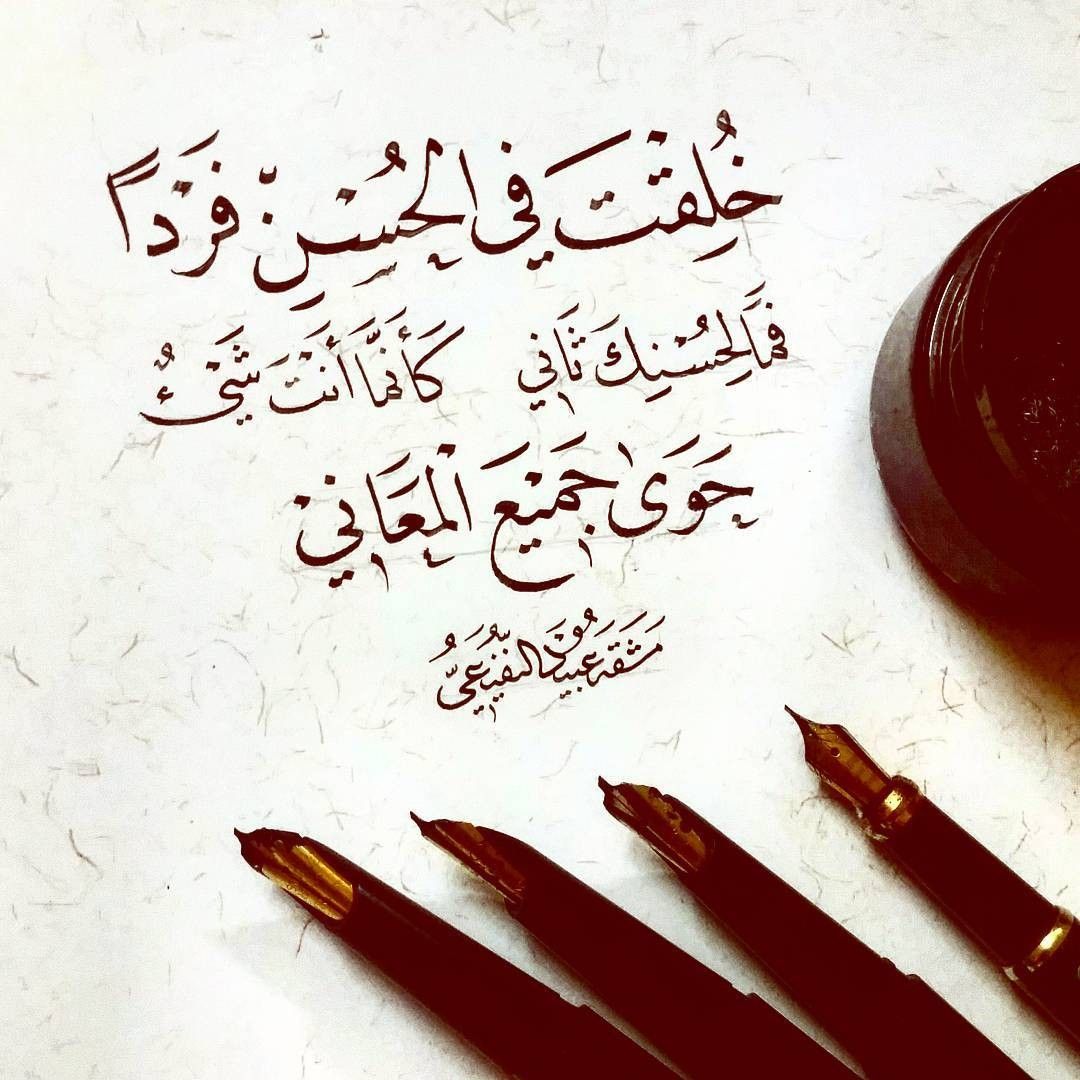 خُلِقْتَ فِي الحُسْنِ فَرْدًا
فَمَا لِحُسْنِكَ ثَانِي كَأَنَّمَا أَنْتَ شَيْءٌ
حَوَى جَمِيْعَ الْمَعَانِيْ
مَشَقَهُ عَبِيدُ النفيعي